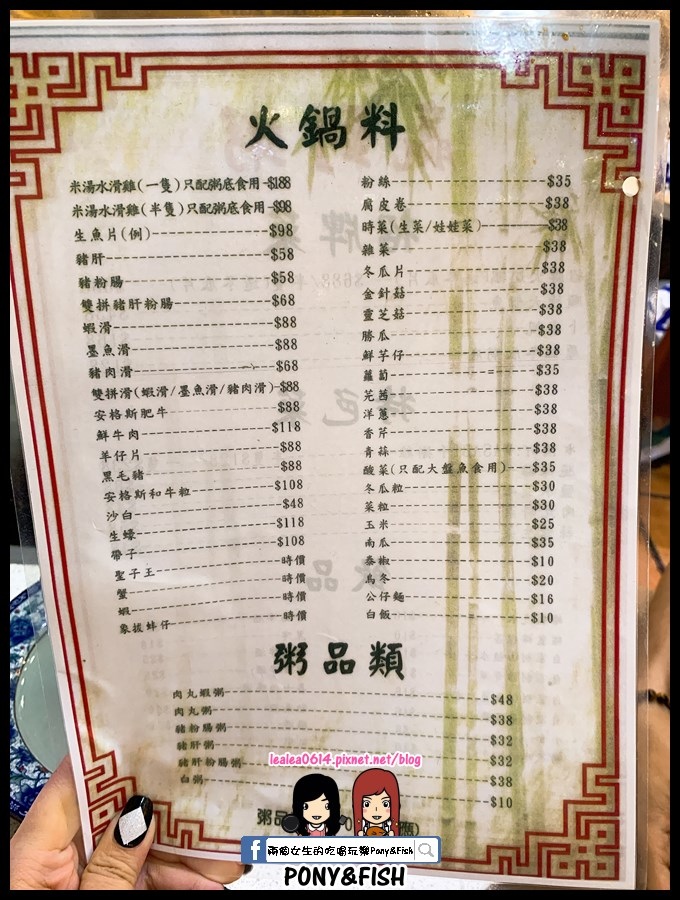 火鍋料
米湯水滑雞(一隻)只配粥底食用 -$188
米湯水滑雞(半隻)只配粥底食用 -$98
生魚片(例)---$98
豬肝---$58
豬粉腸---$58
雙拼豬肝粉腸---$68
蝦滑---$88
墨魚滑---$88
豬肉滑---$68
雙拼滑(蝦滑/墨魚滑/豬肉滑)-$88
安格斯肥牛---$88
鮮牛肉---$118
羊仔片---$88
黑毛豬---$88
安格斯和牛粒---$108
沙白---$48
生蠔---$118
帶子---$108
聖子王---時價
蟹---時價
蝦---時價
象拔蚌仔---時價
粉絲---$35
腐皮卷---$38
時菜(生菜/娃娃菜)---$38
雜菜---$38
冬瓜片---$38
金針菇---$38
靈芝菇---$38
勝瓜---$38
鮮芋仔---$38
蘿蔔---$35
芫茜---$38
洋蔥---$38
香芹---$38
青蒜---$38
酸菜(只配大盤魚食用)---$35
冬瓜粒---$30
菜粒---$30
玉米---$25
南瓜---$35
泰椒---$10
烏冬---$20
公仔麵---$16
白飯---$10
粥品類
肉丸蝦粥---$48
肉丸粥---$38
豬粉腸粥---$32
豬肝粥---$32
豬肝粉腸粥---$38
白粥---$10
lealea0614.pixnet.net/blog
粥品
兩個女生的吃喝玩樂Pony&Fish
PONY&FISH